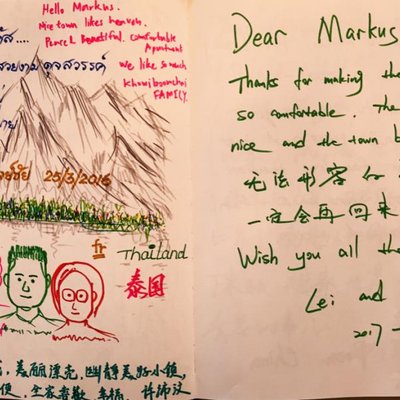 Hello Markus.
Nice town likes heaven.
Peace & Beautiful. comfortable
Apartment
we like so much
FAMILY.
สวยงาม ดุจสวรรค์
25/3/2016
Thailand
泰国
美丽漂亮, 幽静美好小镇,
Dear Markus
Thanks for making the
so comfortable. The
nice and the town b
无法形容
一定会再回来
Wish you all the
Lei and
2017